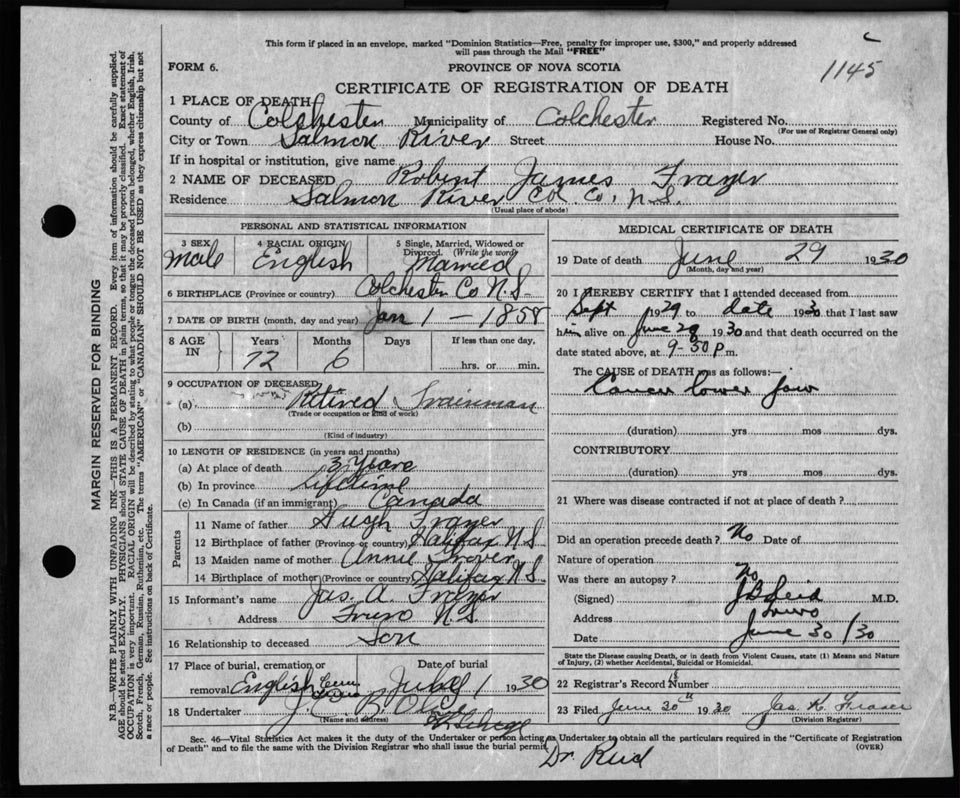 This form if placed in an envelope, marked "Dominion Statistics—Free, penalty for improper use, $300," and properly addressed
will pass through the Mail "FREE"
FORM 6.
PROVINCE OF NOVA SCOTIA
1145
CERTIFICATE OF REGISTRATION OF DEATH
1 PLACE OF DEATH
County of Colchester Municipality of Colchester Registered No.
(For use of Registrar General only)
City or Town Salmon River Street House No.
If in hospital or institution, give name
2 NAME OF DECEASED Robert James Frazer
Residence Salmon River Col Co, N.S.
(Usual place of abode)
PERSONAL AND STATISTICAL INFORMATION
3 SEX Male
4 RACIAL ORIGIN English
5 Single, Married, Widowed or Divorced. (Write the word) Married
6 BIRTHPLACE (Province or country) Colchester Co N.S.
7 DATE OF BIRTH (month, day and year) Jan 1 — 1858
8 AGE IN Years Months Days If less than one day,
72 6 hrs. or min.
9 OCCUPATION OF DECEASED
(a) Retired Trainman
(Trade or occupation or kind of work)
(b)
(Kind of industry)
10 LENGTH OF RESIDENCE (in years and months)
(a) At place of death 3 Years
(b) In province Lifetime
(c) In Canada (if an immigrant) Canada
Parents
11 Name of father Hugh Frazer
12 Birthplace of father (Province or country) Halifax N.S.
13 Maiden name of mother Annie
14 Birthplace of mother (Province or country) Halifax N.S.
15 Informant's name Jas. A. Frazer
Address Truro N.S.
16 Relationship to deceased Son
17 Place of burial, cremation or removal English Cem Truro
Date of burial July 1 1930
18 Undertaker J. C. B.
(Name and address)
MEDICAL CERTIFICATE OF DEATH
19 Date of death June 29 1930
(Month, day and year)
20 I HEREBY CERTIFY that I attended deceased from
Sept 1929 to date 1930 that I last saw
him alive on June 29 1930 and that death occurred on
date stated above, at 9-30 p m.
The CAUSE of DEATH was as follows:—
Cancer lower jaw
(duration) yrs mos dys.
CONTRIBUTORY
(duration) yrs mos dys.
21 Where was disease contracted if not at place of death?
Did an operation precede death? No Date of
Nature of operation
Was there an autopsy? No
(Signed) Reid M.D.
Address Truro
Date June 30/30
State the Disease causing Death, or in death from Violent Causes, state (1) Means and Nature
of Injury, (2) whether Accidental, Suicidal or Homicidal.
22 Registrar's Record Number
23 Filed June 30" 1930 Jas. H. Fraser
(Division Registrar)
Sec. 46—Vital Statistics Act makes it the duty of the Undertaker or person acting as Undertaker to obtain all the particulars required in the "Certificate of Registration
of Death" and to file the same with the Division Registrar who shall issue the burial permit.
(OVER)
Dr. Reid
MARGIN RESERVED FOR BINDING
N.B.—WRITE PLAINLY WITH UNFADING INK—THIS IS A PERMANENT RECORD. Every item of information should be carefully supplied.
AGE should be stated EXACTLY. PHYSICIANS should STATE CAUSE OF DEATH in plain terms, so that it may be properly classified. Exact statement of
OCCUPATION is very important. RACIAL ORIGIN will be described by stating to what people or tongue the deceased person belonged, whether English, Irish,
Scotch, French, German, Russian, Ruthenian, etc. The terms "AMERICAN" or "CANADIAN" SHOULD NOT BE USED as they express citizenship but not
a race or people. See instructions on back of Certificate.